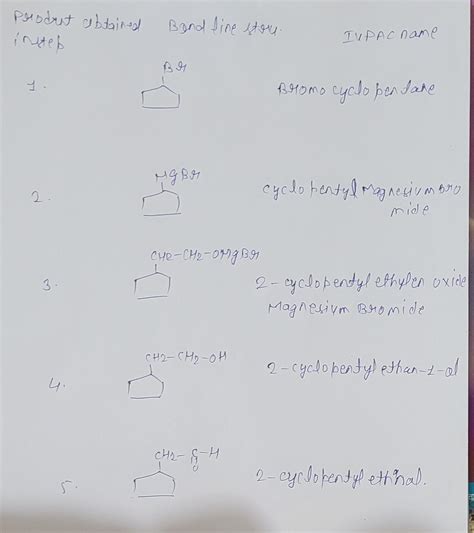 Product obtained Bond line stru. IUPAC name
in step
1. Br Bromo cyclopentane
2. MgBr cyclopentyl Magnesium Bro
mide
CH2-CH2-OMgBr
3. 2-cyclopentyl ethylen oxide
Magnesium Bromide
CH2-CH2-OH
2-cyclopentyl ethan-1-ol
4.
CH2-C-H
O
5. 2-cyclopentyl ethnal.